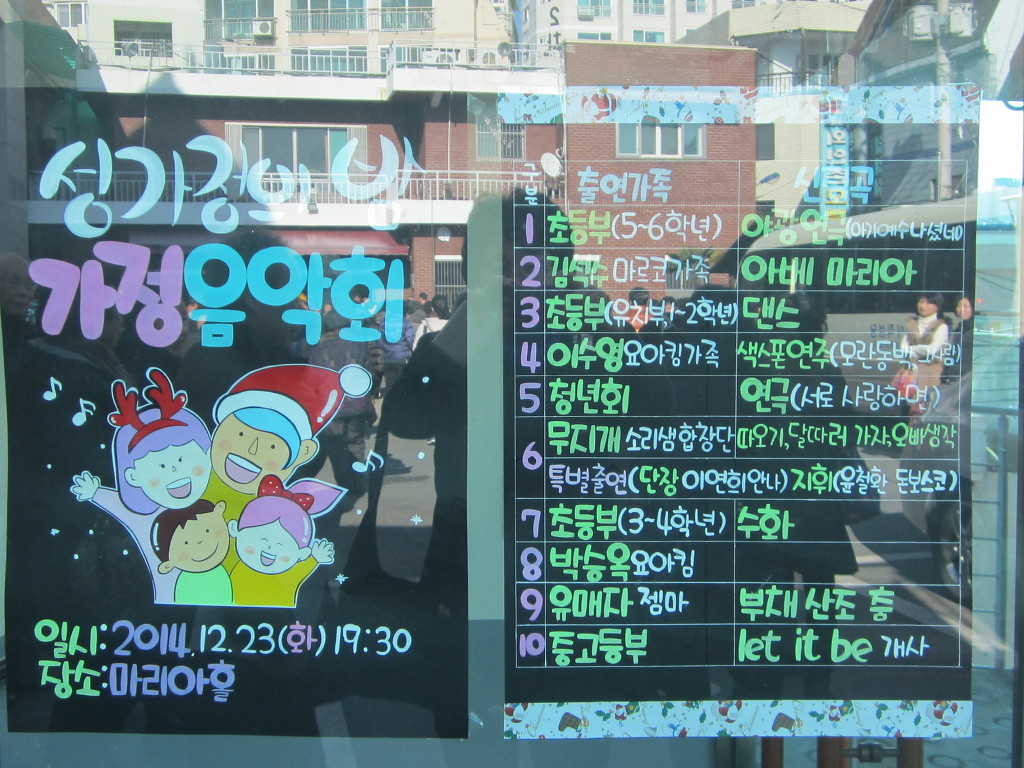 성가정의 밤
가정음악회
일시: 2014.12.23(화) 19:30
장소: 마리아홀
구분 출연가족 신청곡
1 초등부(5~6학년) 야광연극(아기예수나셨네!)
2 김석수 마르코가족 아베 마리아
3 초등부(유치부,1~2학년) 댄스
4 이수영요아킴가족 색스폰연주(모란동백,
5 청년회 연극(서로 사랑하면!)
6 무지개 소리샘합창단 따오기,달따러 가자,오빠생각
특별출연(단장 이연희안나) 지휘(윤철환 돈보스코)
7 초등부(3~4학년) 수화
8 박승옥요아킴
9 유매자 젬마 부채 산조 춤
10 중고등부 let it be 개사